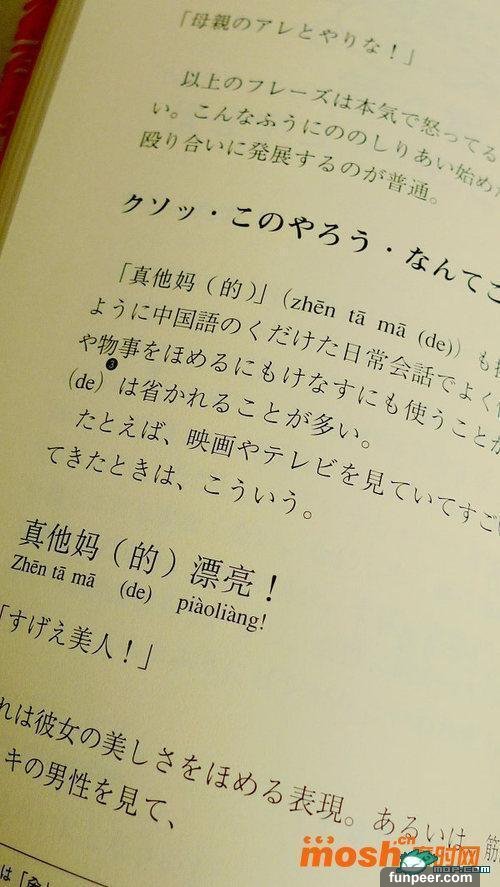 「母親のアレとやりな！」
以上のフレーズは本気で怒ってる
い。こんなふうにののしりあい始め
殴り合いに発展するのが普通。
クソッ・このやろう・なんてこ
「真他妈（的）」（zhēn tā mā (de)）も
ように中国語のくだけた日常会話でよく
や物事をほめるにもけなすにも使うことが
❸
(de)）は省かれることが多い。
たとえば、映画やテレビを見ていてすご
てきたときは、こういう。
真他妈（的）漂亮！
Zhēn tā mā (de) piàoliàng!
「すげえ美人！」
れは彼女の美しさをほめる表現。あるいは、筋
キの男性を見て、
は「
mosh.cn
有时网
MOP.COM
funpeer.com